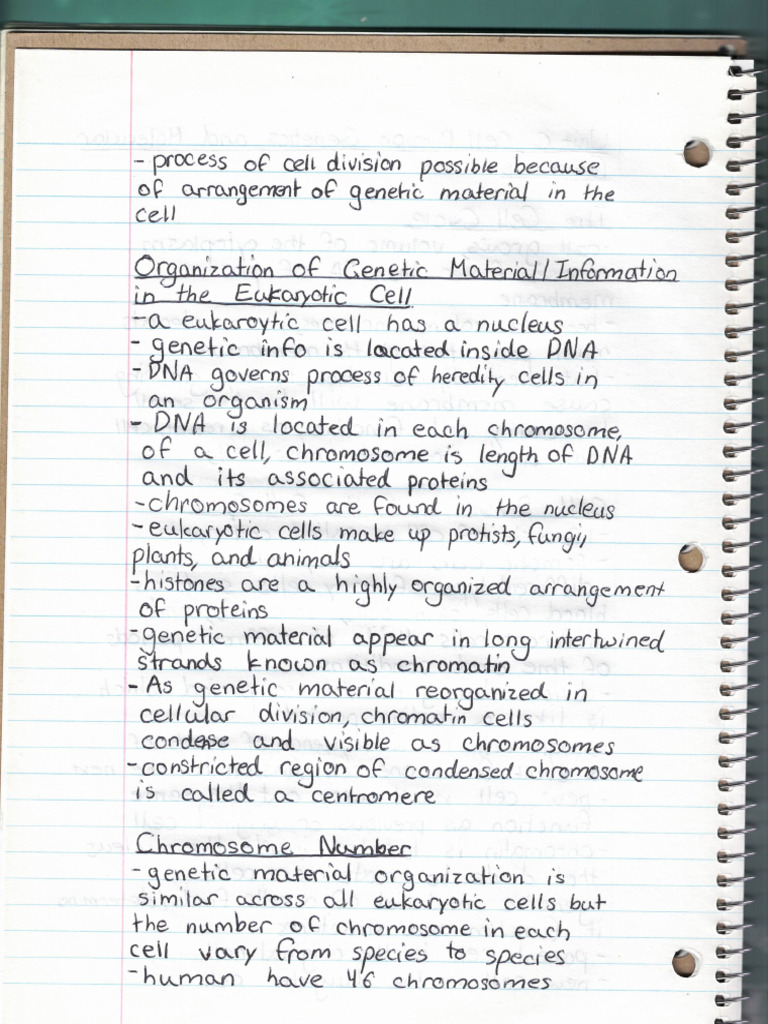 - process of cell division possible because
of arrangement of genetic material in the
cell
Organization of Genetic Material/Information
in the Eukaryotic Cell
- a eukaroytic cell has a nucleus
- genetic info is located inside DNA
- DNA governs process of heredity cells in
an organism
- DNA is located in each chromosome,
of a cell, chromosome is length of DNA
and its associated proteins
- chromosomes are found in the nucleus
- eukaryotic cells make up protists, fungi,
plants, and animals
- histones are a highly organized arrangement
of proteins
- genetic material appear in long intertwined
strands known as chromatin
- As genetic material reorganized in
cellular division, chromatin cells
condense and visible as chromosomes
- constricted region of condensed chromosome
is called a centromere
Chromosome Number
- genetic material organization is
similar across all eukaryotic cells but
the number of chromosome in each
cell vary from species to species
- human have 46 chromosomes